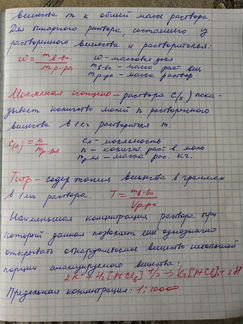 вещества m к общей массе раствора.
Для бинарного раствора, состоящего из
растворенного вещества и растворителя:
ω = m в-ва / m р-ра
ω - массовая доля
m в-ва - масса раст. вещ.
m р-ра - масса раствор
Моляльная концентр - раствора C(x) пока-
зывает количество молей n растворенного
вещества в 1 кг растворителя m
C(x) = n / m р-ля
Cx - моляльность
n - количес раст. в моле
m р-ля - масса рас. кг.
Титр - содержание вещества в граммах
в 1 мл раствора. T = m в-ва / V р-ра
Наименьшая концентрация раствора при
которой данная позволяет еще однозначно
открывать обнаруживаемое вещество
порции анализируемого вещества:
Предельная концентрация: 1:10000